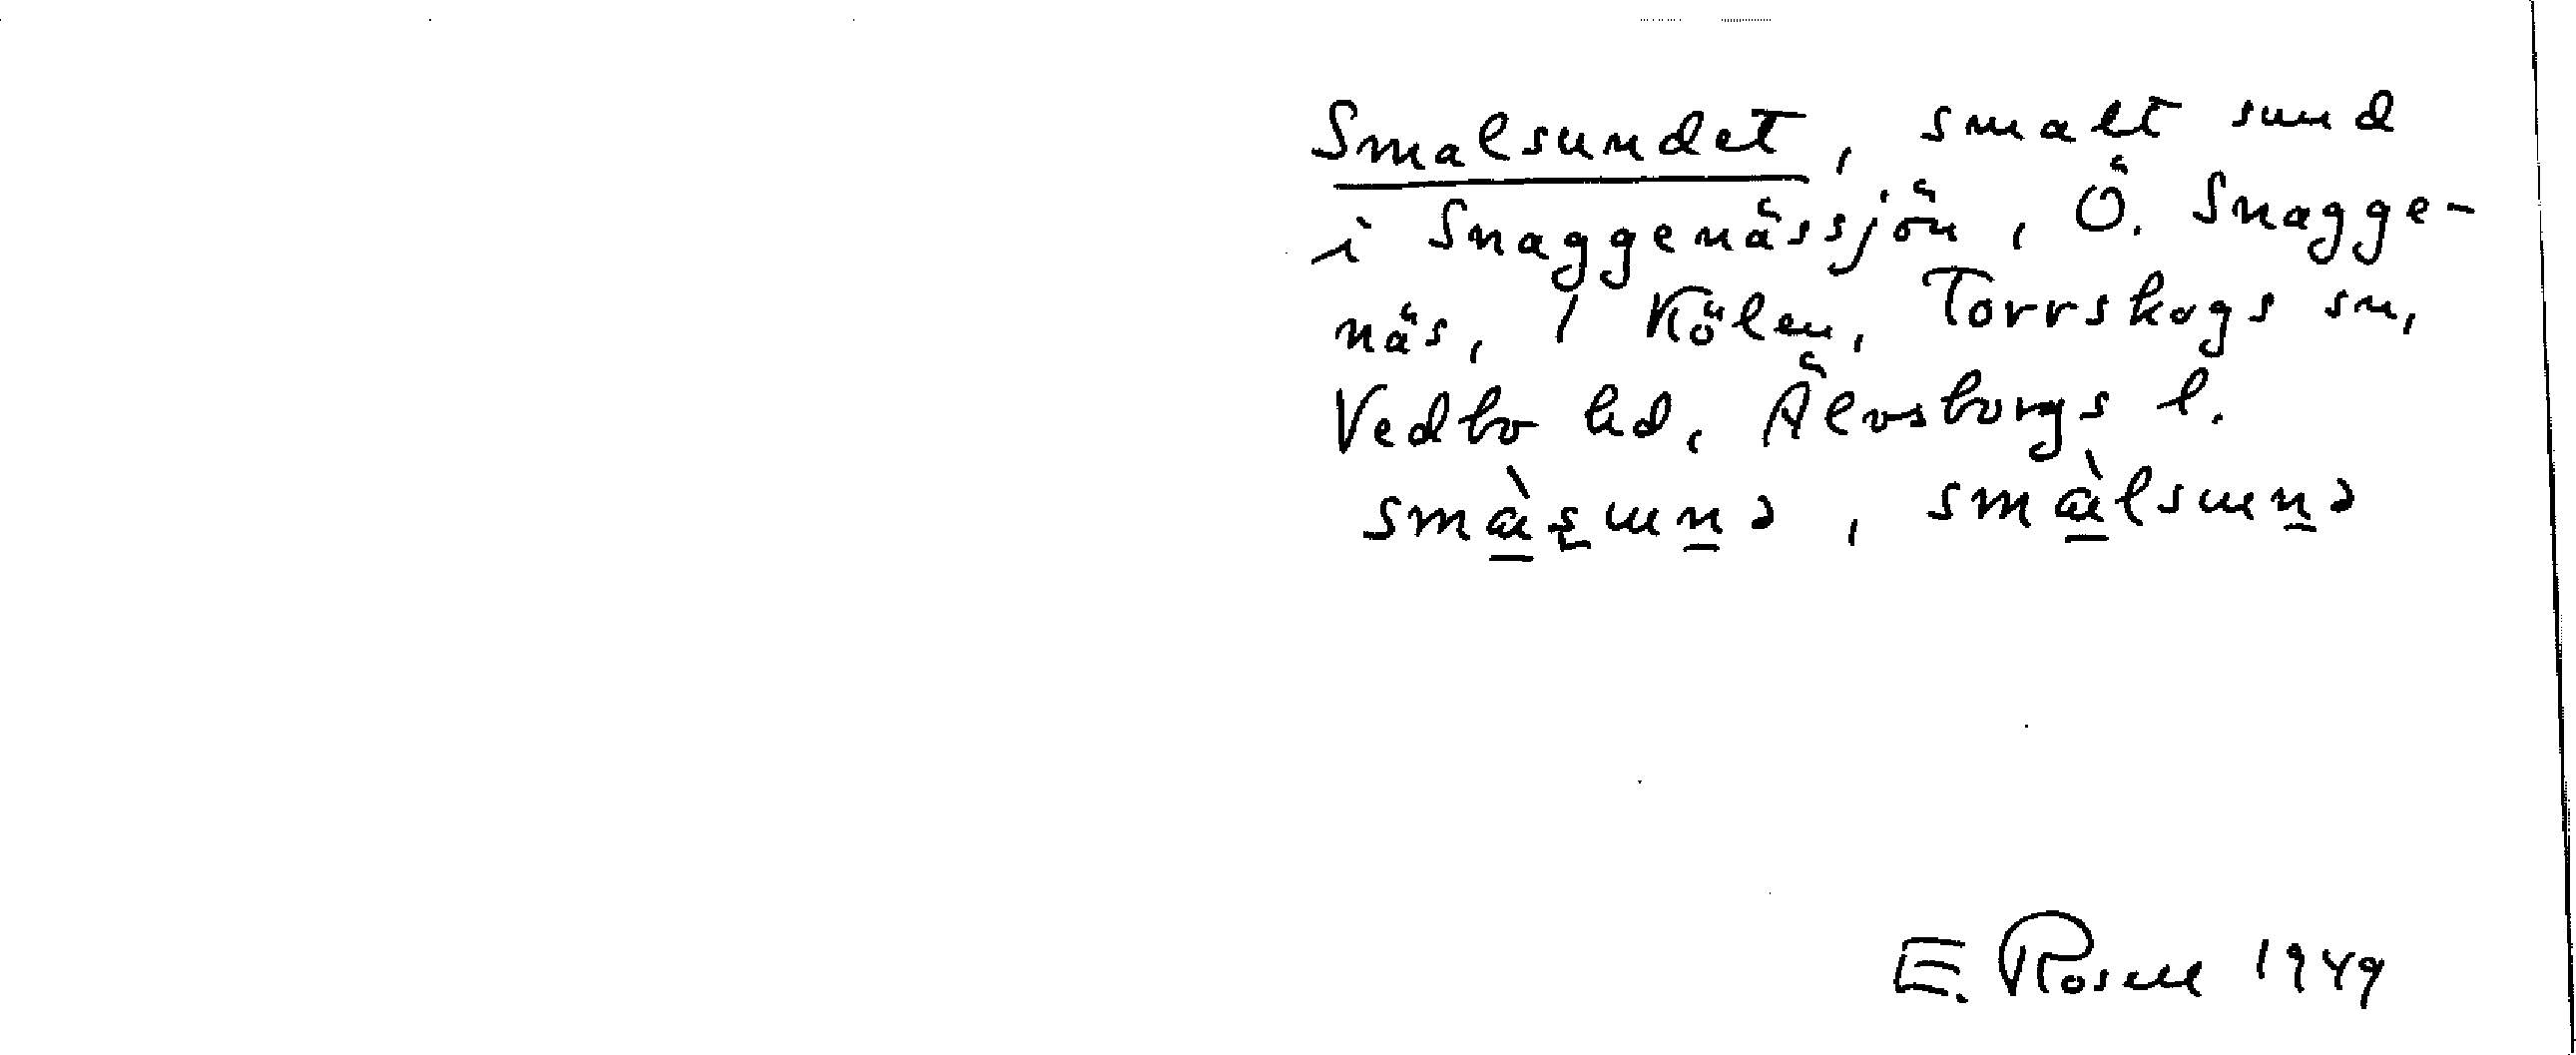 Smalsundet, smalt sund
i Snaggenässjön, Ö. Snagge-
näs, 1 Kölen, Torrskogs sn,
Vedbo hd, Älvsborgs l.
E. Rosell 1949